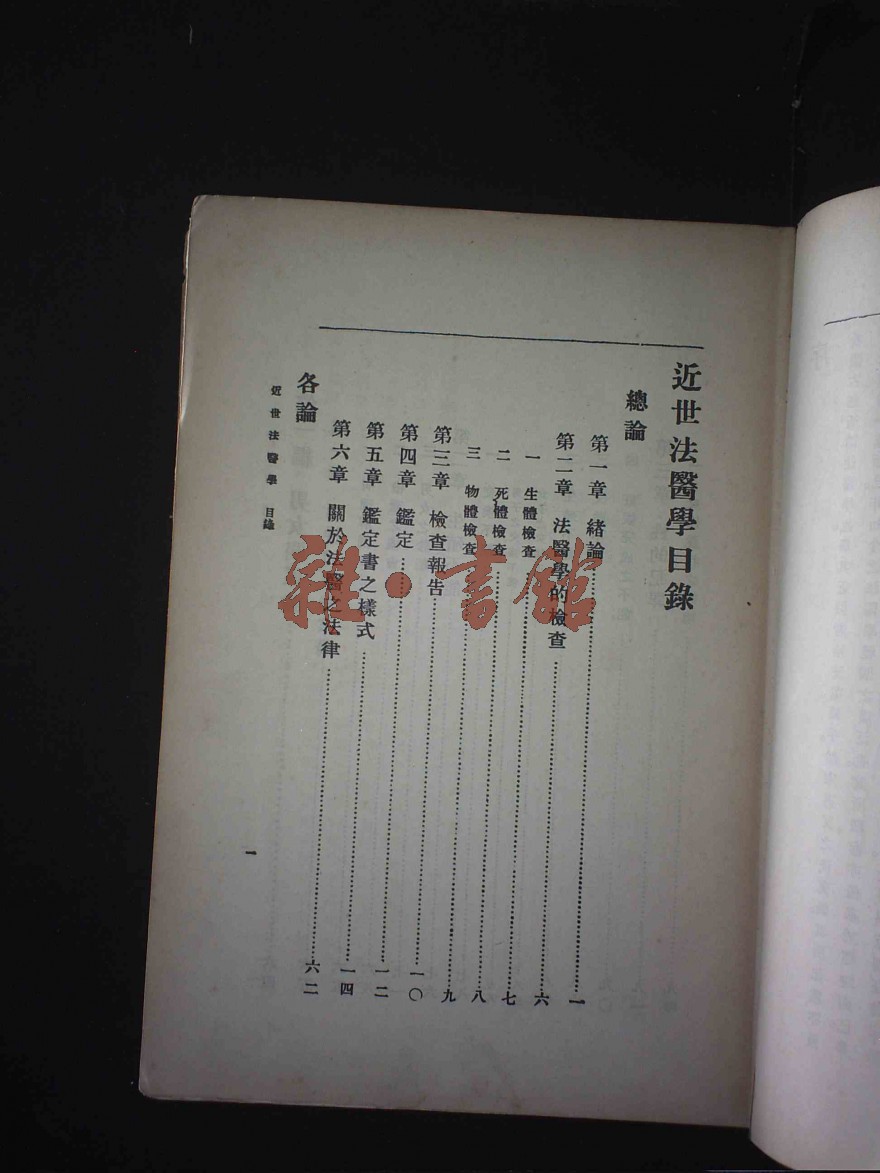 近世法醫學目錄
總論
第一章 緒論……一
第二章 法醫學的檢查……六
一 生體檢查……七
二 死體檢查……八
三 物體檢查……九
第三章 檢查報告……一〇
第四章 鑑定……一二
第五章 鑑定書之樣式……一四
第六章 關於法醫之法律……六二
各論
近世法醫學 目錄
一
雜·書館